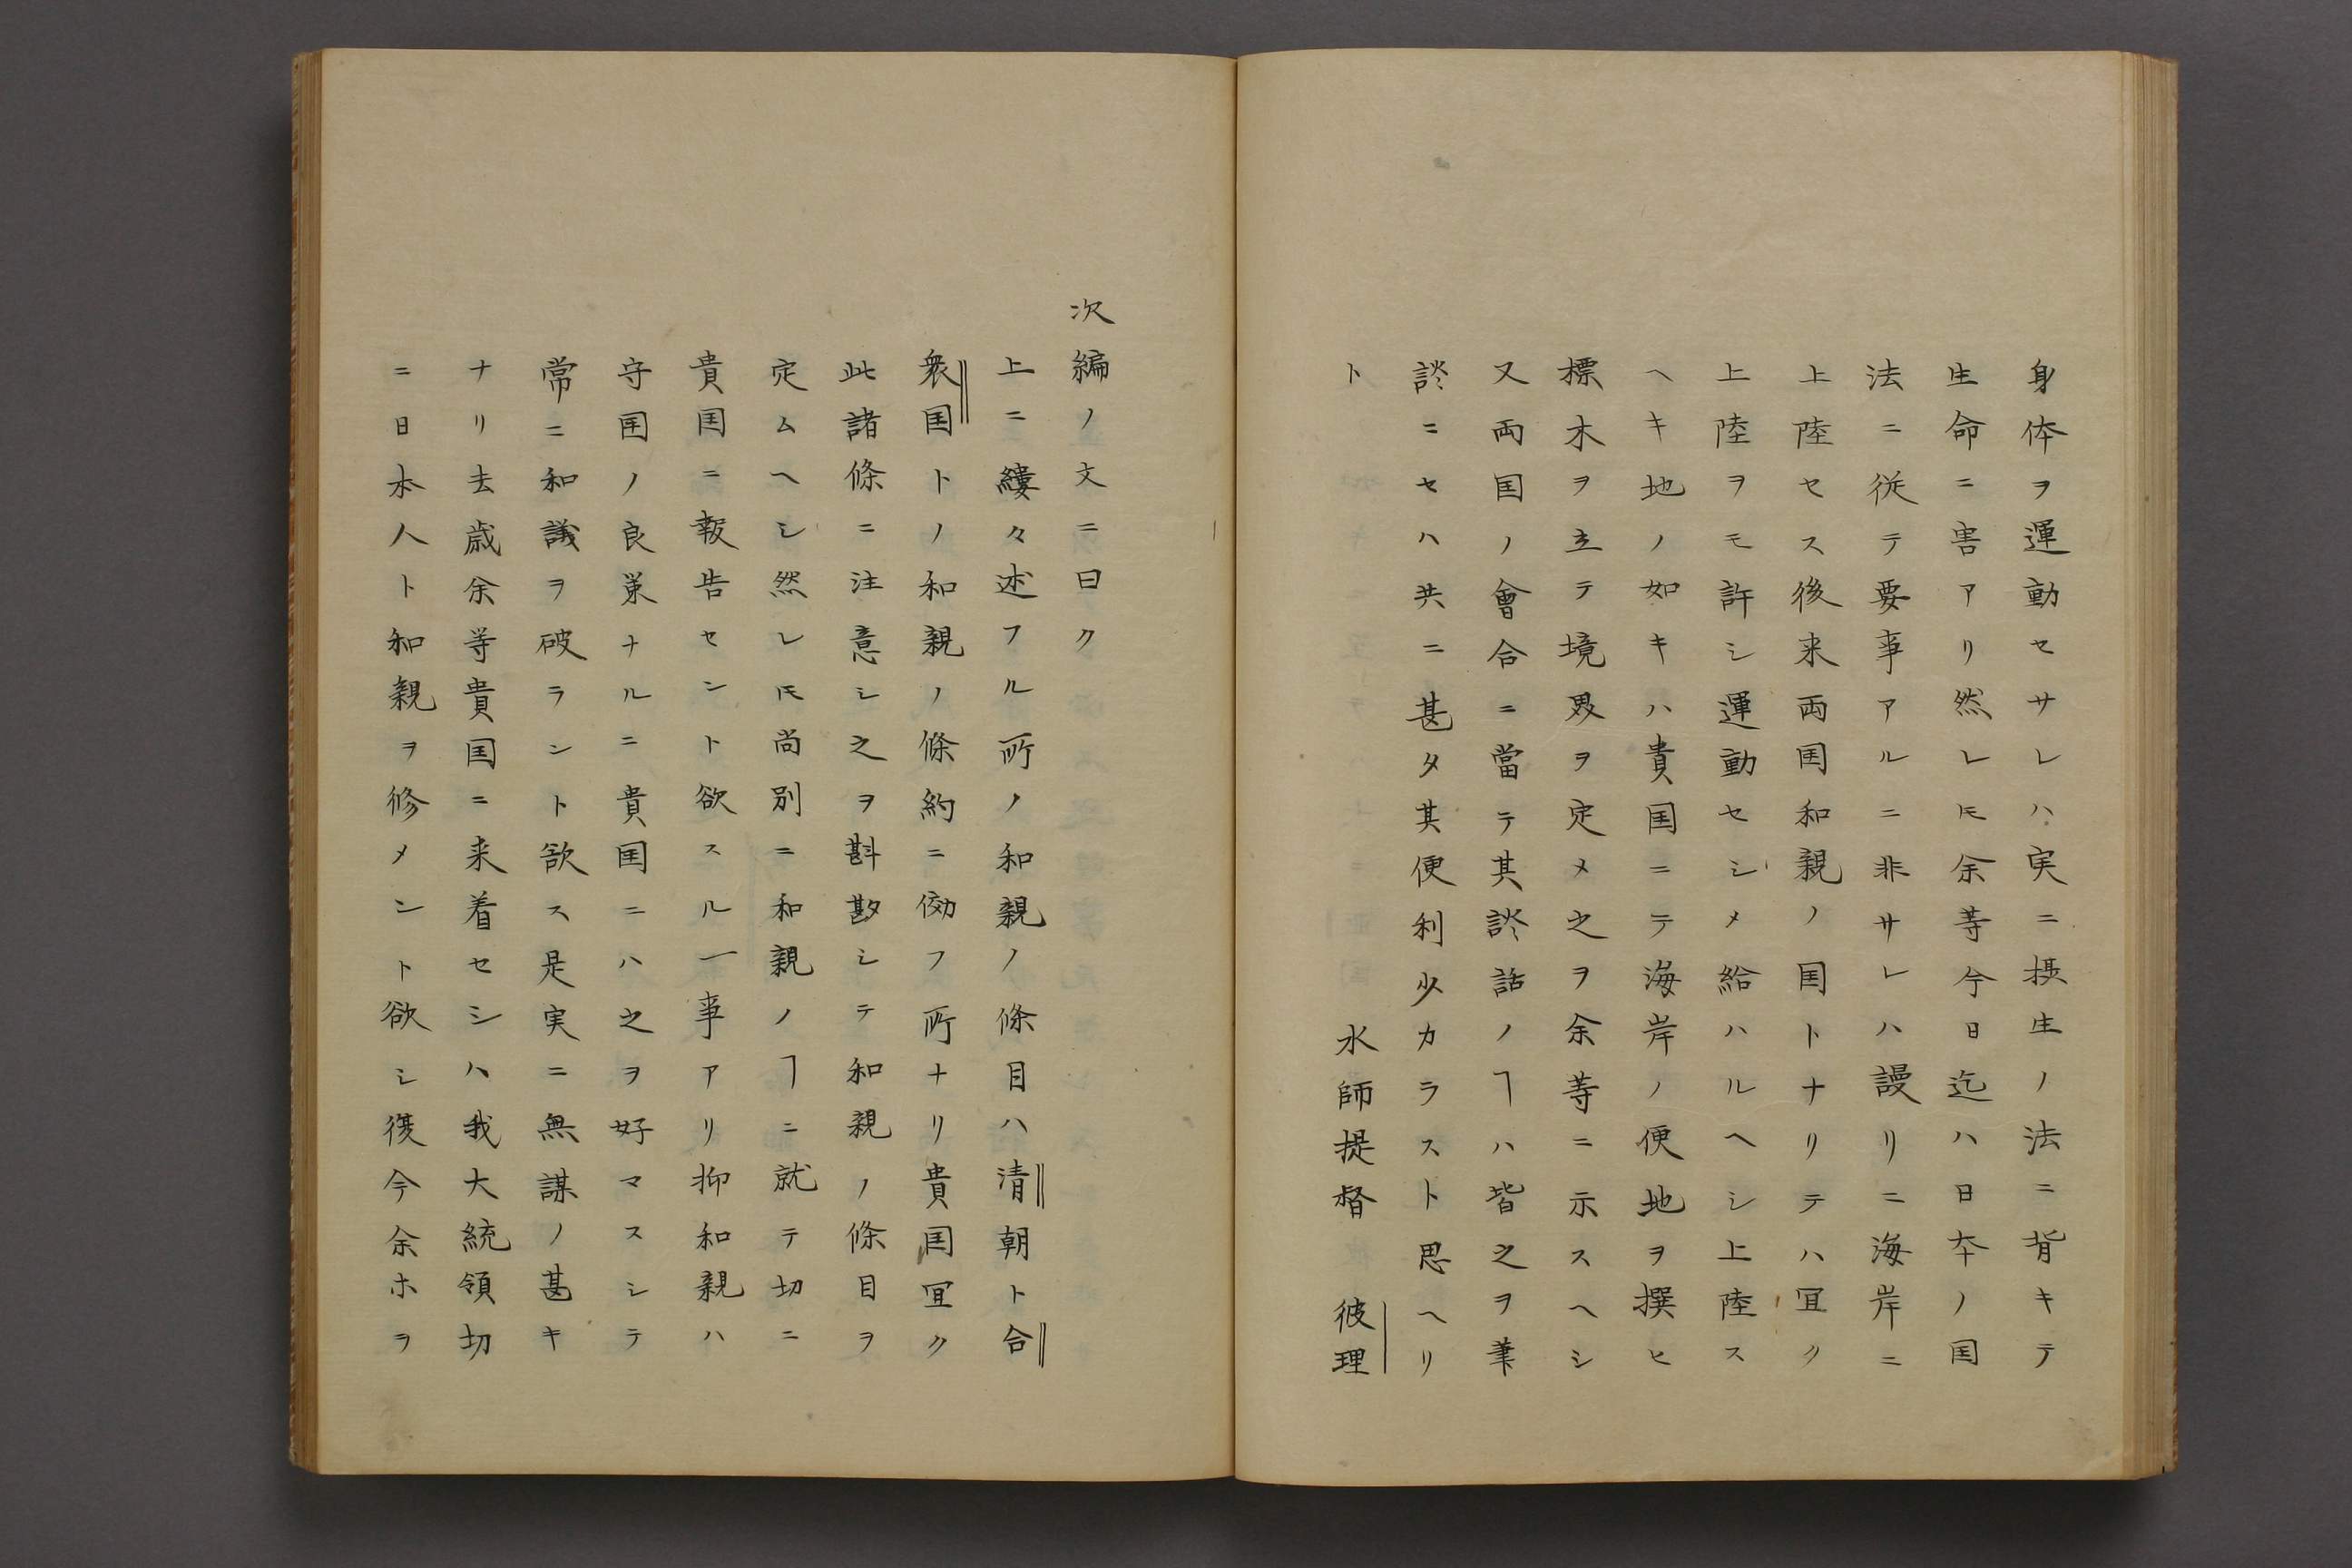 身体ヲ運動セサレハ実ニ摂生ノ法ニ背キテ
生命ニ害アリ然レ𪜈余等今日迄ハ日本ノ国
法ニ従テ要事アルニ非サレハ謾リニ海岸ニ
上陸セス後来両国和親ノ国トナリテハ宜ク
上陸ヲモ許シ運動セシメ給ハルヘシ上陸ス
ヘキ地ノ如キハ貴国ニテ海岸ノ便地ヲ撰ヒ
標木ヲ立テ境界ヲ定メ之ヲ余等ニ示スヘシ
又両国ノ會合ニ當テ其談話ノヿハ皆之ヲ筆
談ニセハ共ニ甚タ其便利少カラスト思ヘリ
ト　水師提督　彼理
次編ノ文ニ曰ク
上ニ縷々述フル所ノ和親ノ條目ハ清朝ト合
衆国トノ和親ノ條約ニ傚フ所ナリ貴国宜ク
此諸條ニ注意シ之ヲ斟酌シテ和親ノ條目ヲ
定ムヘシ然レ𪜈尚別ニ和親ノヿニ就テ切ニ
貴国ニ報告セント欲スル一事アリ抑和親ハ
守国ノ良策ナルニ貴国ニハ之ヲ好マスシテ
常ニ和議ヲ破ラント欲ス是実ニ無謀ノ甚キ
ナリ去歳余等貴国ニ来着セシハ我大統領切
ニ日本人ト和親ヲ修メント欲シ復今余ホヲ